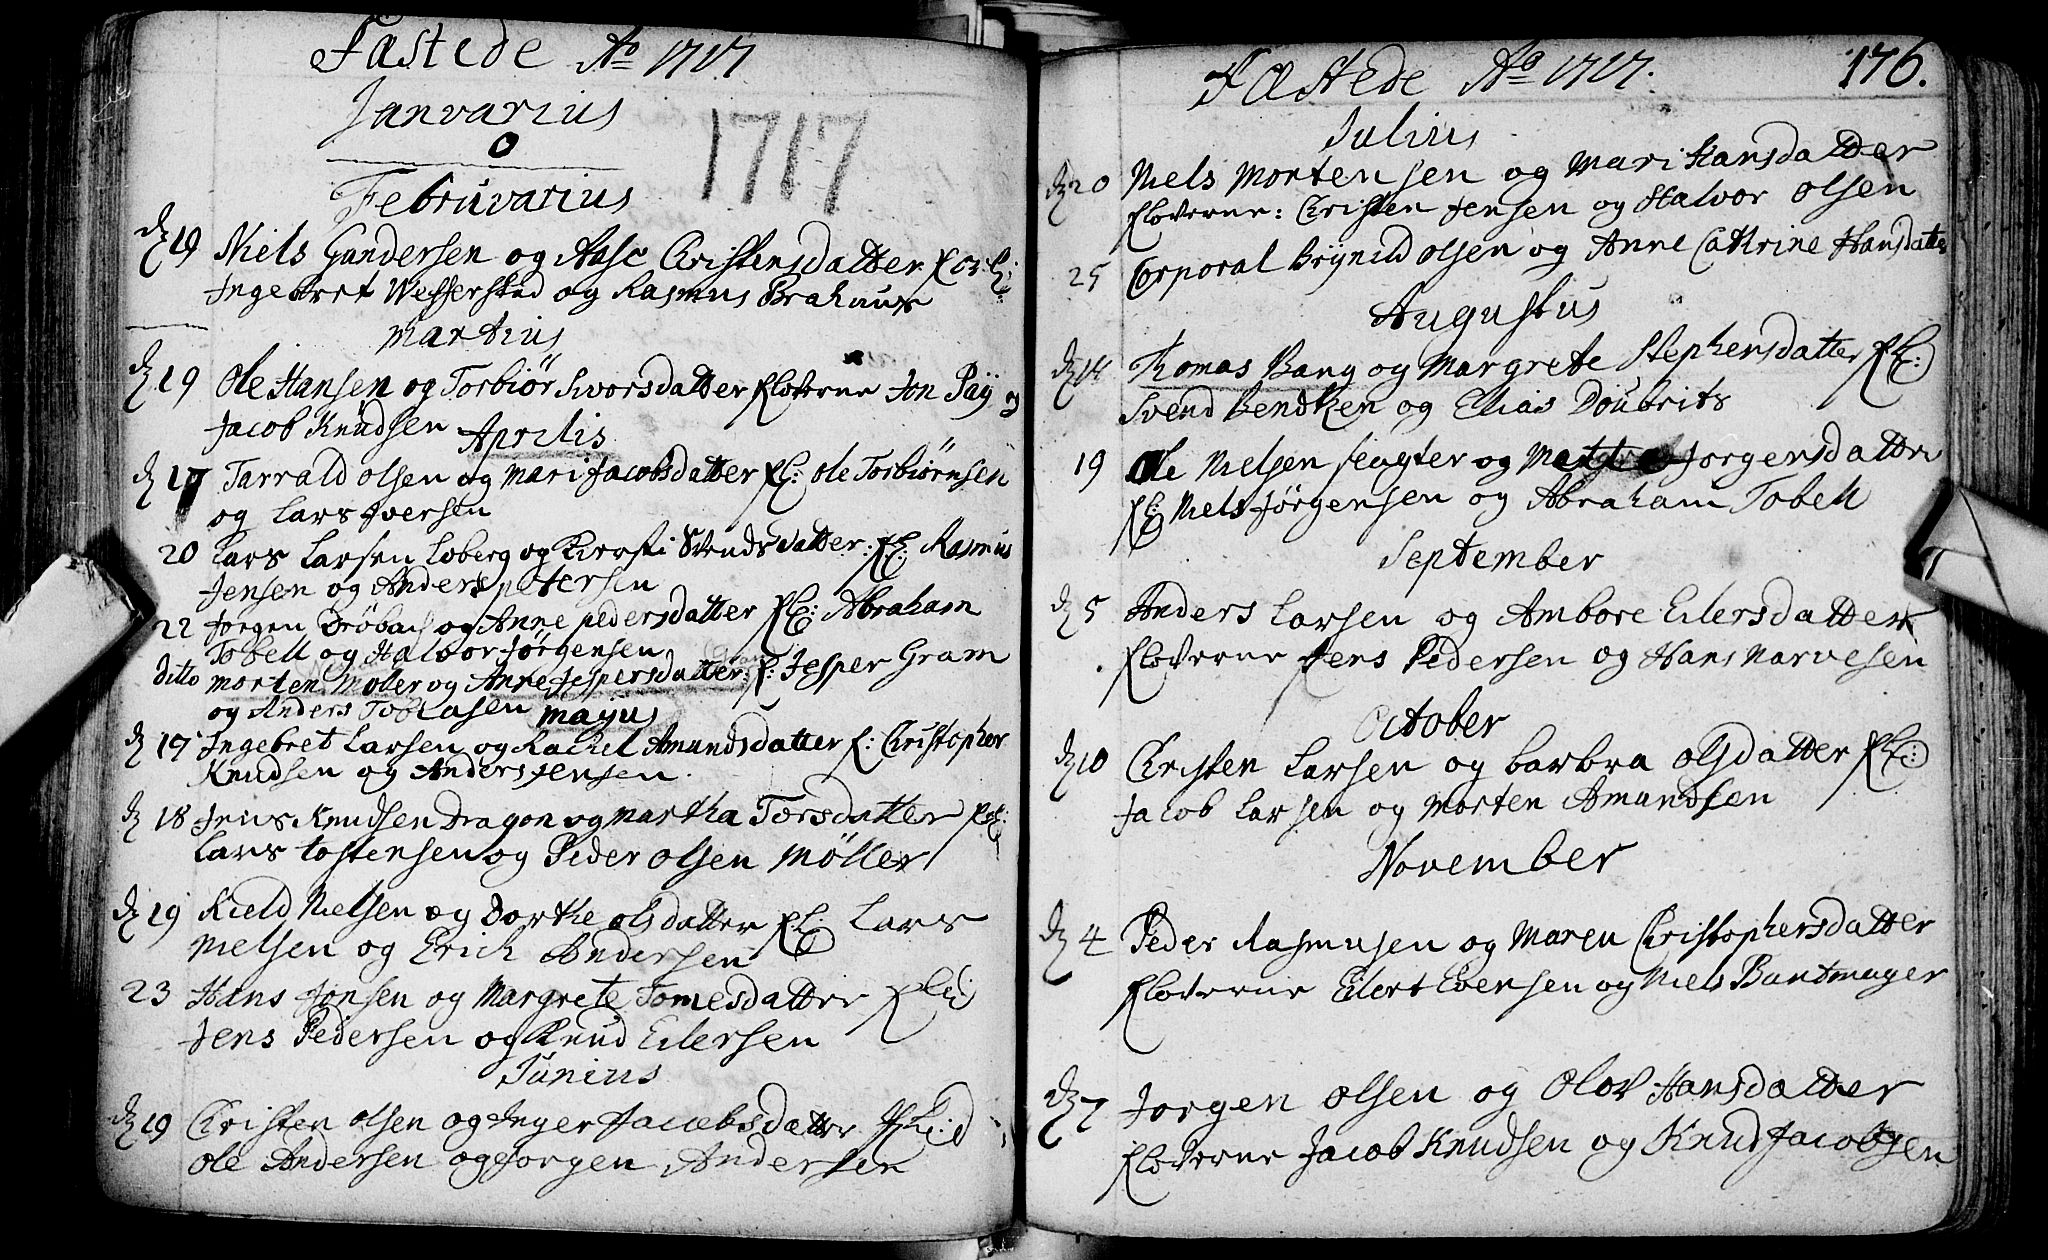 Fæstede Ao 1717
Janvarius
0
1717
Februvarius
dz 19 Niels Gundersen og Aase Christensdatter
Ingebret Wessersted og Rasmus Brahuus
Martius
dz 19 Ole Hansen og Torbiør Ivorsdatter Floverne Jon Paÿ og
Jacob Knudsen
Aprilis
dz 17 Tarrald Olsen og Mari Jacobsdatter Fl: Ole Torbiørnsen
og Lars Iversen
20 Lars Larsen Loberg og Kiersti Svendsdatter: Fl: Rasmus
Jensen og Anders Petersen
22 Jorgen Drøbach og Anne Pedersdatter Fl: Abraham
Tobell og Halvor Jørgensen
ditto Morten Møler og Anne Jespersdatter: F: Jesper Gram
og Anders Tobiasen
Majus
dz 17 Ingebret Larsen og Rachel Amundsdatter F: Christopher
Knudsen og Anders Jensen.
dz 18 Jens Knudsen Dragon og Martha Torsdatter Fl:
Lars Tostensen og Peder Olsen Møller
dz 19 Kield Nielsen og Dorthe Olsdatter Fl: Lars
Nielsen og Erich Andersen
23 Hans Jonsen og Margrete Tomesdatter Fl:
Jens Pedersen og Knud Eilersen
Junius
dz 19 Christen Olsen og Inger Jacobsdatter Fl:
Ole Andersen og Jorgen Andersen
Fæstede Ao 1717.
176.
Julius
dz 20 Niels Mortensen og Mari Hansdatter
Floverne: Christen Jensen og Halvor Olsen
25 Corporal Brÿnild Olsen og Anne Cathrine Hansdatter
Augustus
dz 14 Thomas Bang og Margrete Stephensdatter Fl:
Svend Bendken og Elias Doubrits
19 Ole Nielsen feugter og Jorgensdatter
Fl: Niels Jørgensen og Abraham Tobell
September
dz 5 Anders Larsen og Ambore Eilersdatter
Floverne Jens Pedersen og Hans Narvesen
October
dz 10 Christen Larsen og Barbra Olsdatter Fl:
Jacob Larsen og Morten Amundsen
November
dz 4 Peder Rasmusen og Maren Christophersdatter
Floverne Eilert Evensen og Niels Buntmager
dz 7 Jorgen Olsen og Olov Hansdatter
Floverne Jacob Knudsen og Knud Jacobsen